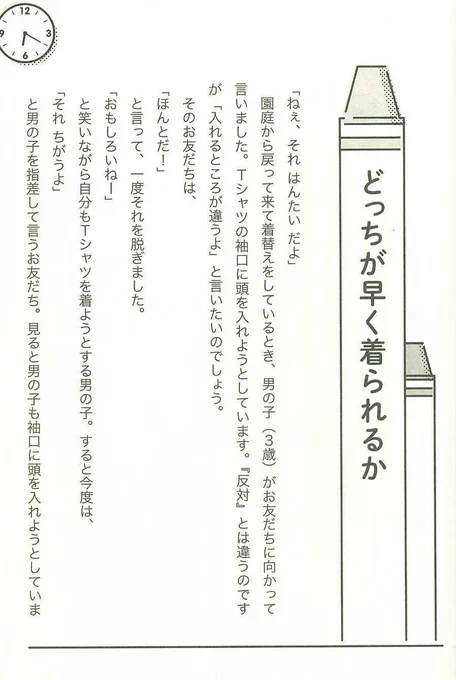 どっちが早く着られるか
「ねぇ、それ はんたい だよ」
園庭から戻って来て着替えをしているとき、男の子（3歳）がお友だちに向かって
言いました。Tシャツの袖口に頭を入れようとしています。『反対』とは違うのです
が「入れるところが違うよ」と言いたいのでしょう。
そのお友だちは、
「ほんとだ！」
と言って、一度それを脱ぎました。
「おもしろいねー」
と笑いながら自分もTシャツを着ようとする男の子。すると今度は、
「それ ちがうよ」
と男の子を指差して言うお友だち。見ると男の子も袖口に頭を入れようとしていま
12
9
3
6